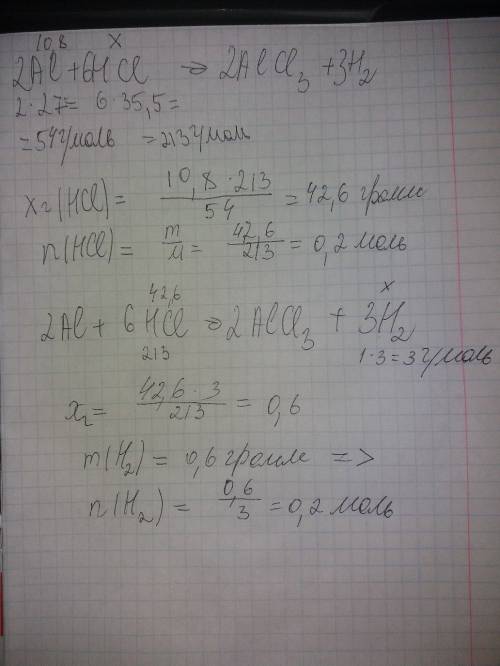 10,8 x
2Al + 6HCl → 2AlCl₃ + 3H₂
2·27= 6·35,5=
=54 г/моль =213 г/моль
Xг(HCl) = 10,8·213/54 = 42,6 грамм
n(HCl) = m/M = 42,6/213 = 0,2 моль
42,6 x
2Al + 6HCl → 2AlCl₃ + 3H₂
213 1·3=3 г/моль
X₂= 42,6·3/213 = 0,6
m(H₂) = 0,6 грамм =>
n(H₂) = 0,6/3 = 0,2 моль